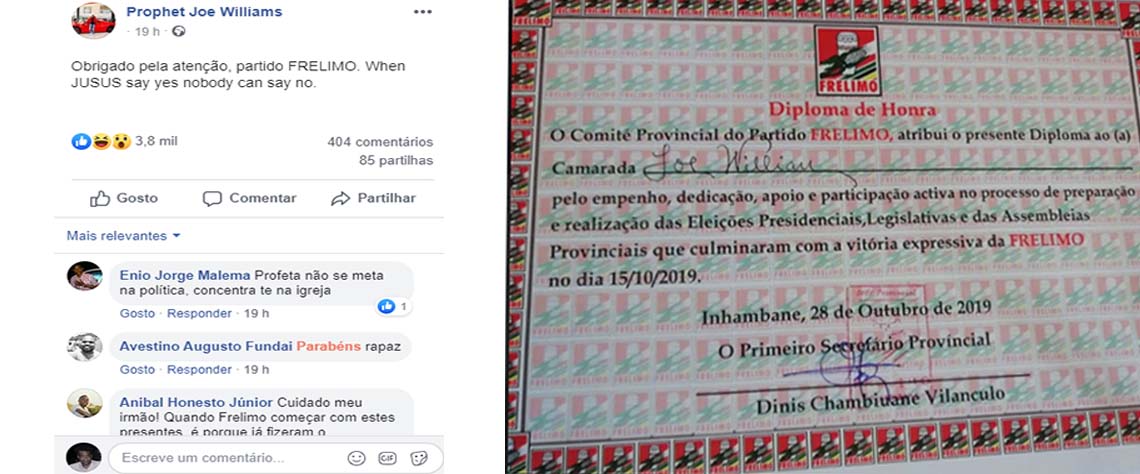 Prophet Joe Williams
· 19 h ·
Obrigado pela atenção, partido FRELIMO. When
JUSUS say yes nobody can say no.
3,8 mil
404 comentários
85 partilhas
Gosto Comentar Partilhar
Mais relevantes
Enio Jorge Malema Profeta não se meta
na política, concentra te na igreja
1
Gosto · Responder · 19 h
Avestino Augusto Fundai Parabéns rapaz
Gosto · Responder · 19 h
Anibal Honesto Júnior Cuidado meu
irmão! Quando Frelimo começar com estes
presentes, é porque já fizeram o
Escreve um comentário...
GIF
FRELIMO
Diploma de Honra
O Comité Provincial do Partido FRELIMO, atribui o presente Diploma ao (a)
Camarada Joe William
pelo empenho, dedicação, apoio e participação activa no processo de preparação
e realização das Eleições Presidenciais,Legislativas e das Assembleias
Provinciais que culminaram com a vitória expressiva da FRELIMO
no dia 15/10/2019.
Inhambane, 28 de Outubro de 2019
O Primeiro Secretário Provincial
Dinis Chambiuane Vilanculo